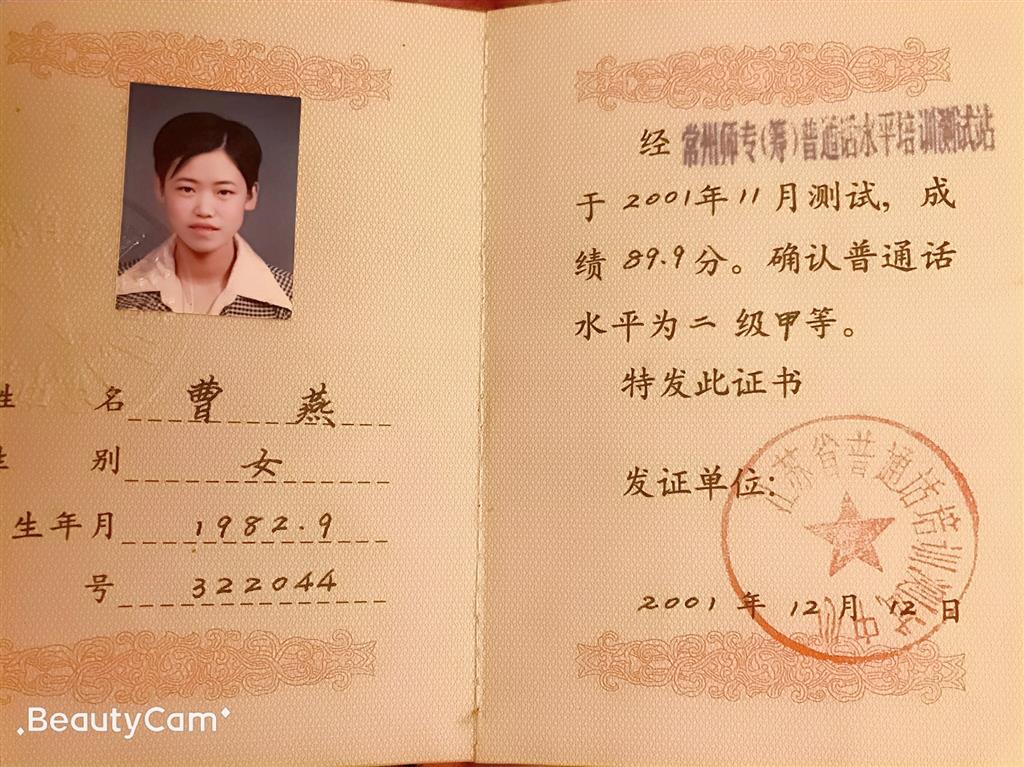 姓 名 曹 燕
性 别 女
生年月 1982.9
号 322044
经 常州师专(筹)普通话水平培训测试站
于 2001年 11月测试，成
绩 89.9分。确认普通话
水平为二 级甲等。
特发此证书
发证单位:
江苏省普通话培训测试中心
2001 年 12 月 12 日
BeautyCam